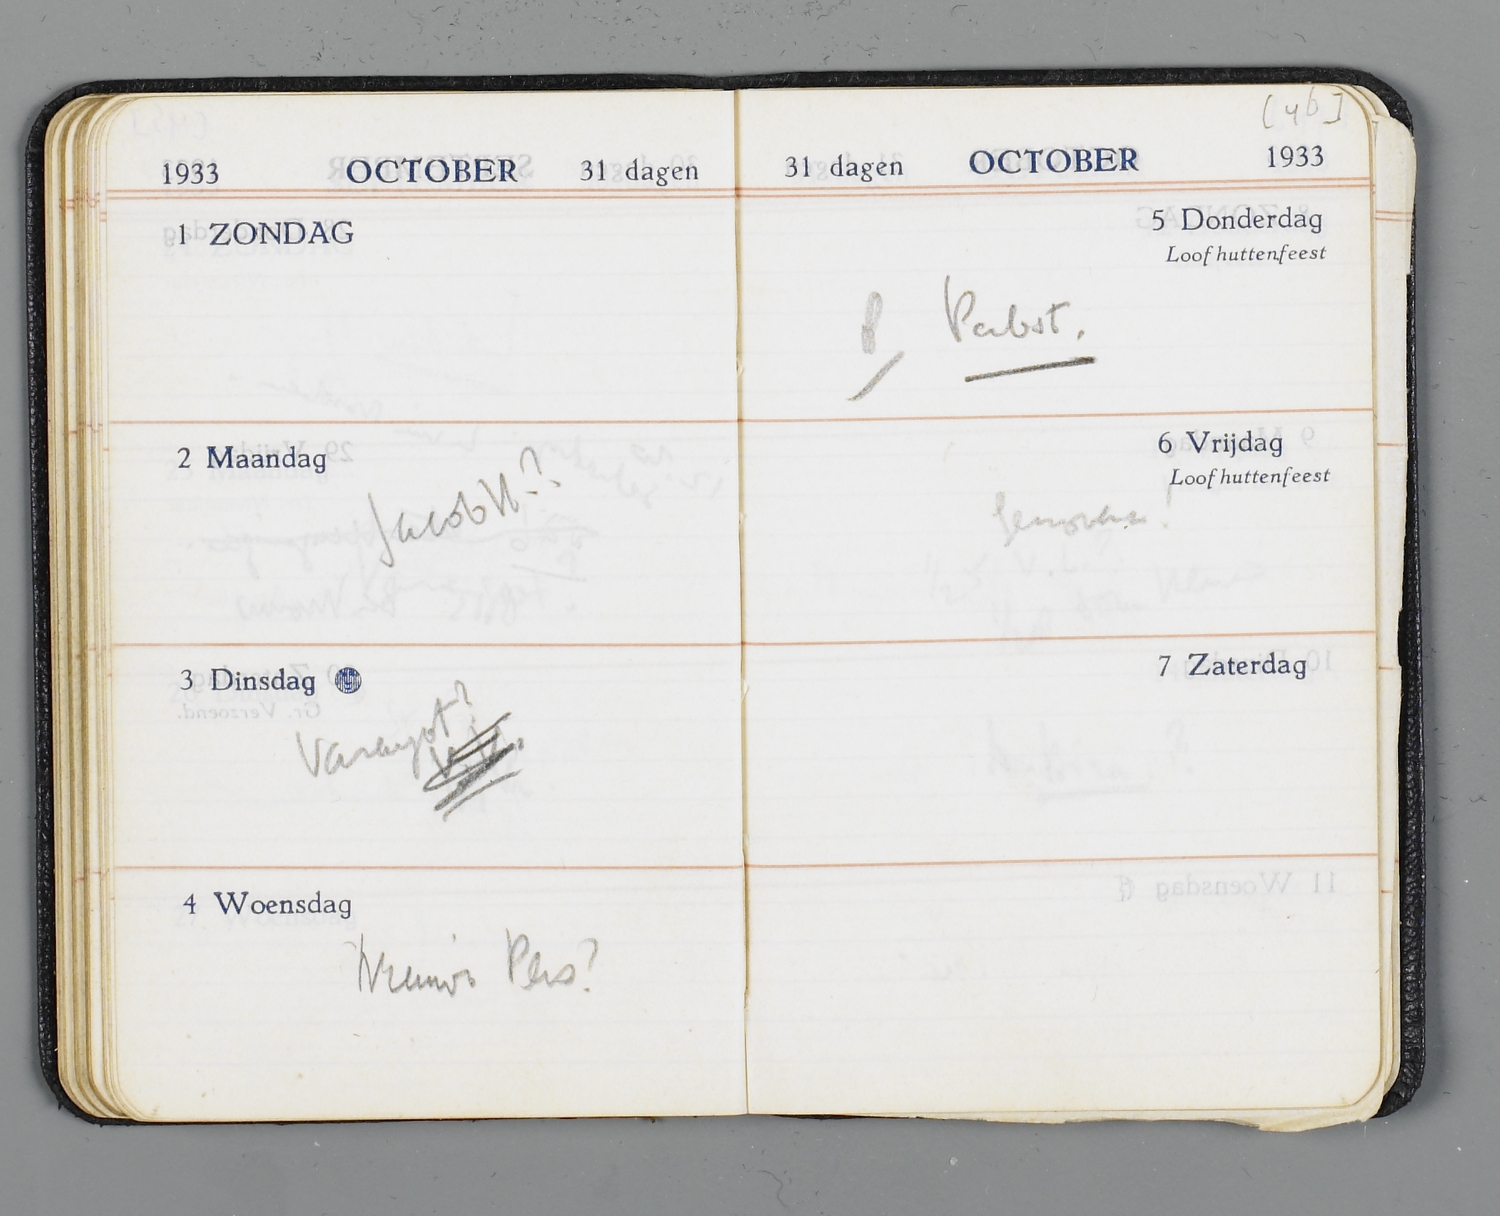 1933 OCTOBER 31 dagen
1 ZONDAG
2 Maandag
3 Dinsdag
4 Woensdag
Pers?
[46]
31 dagen OCTOBER 1933
5 Donderdag
Loofhuttenfeest
8 Pabst.
6 Vrijdag
Loofhuttenfeest
7 Zaterdag